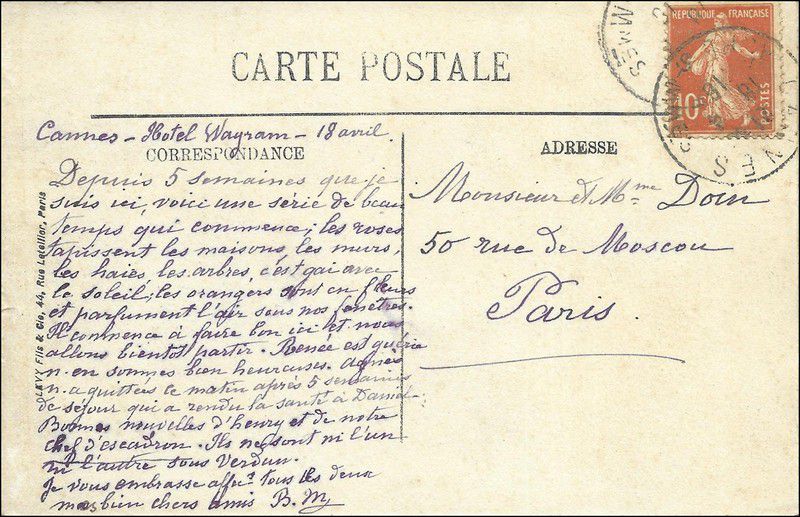 CARTE POSTALE
RÉPUBLIQUE FRANÇAISE
10c
POSTES
CANNES
Cannes - Hotel Wagram - 18 avril
CORRESPONDANCE
Depuis 5 semaines que je
suis ici, voici une serie de beau
temps qui commence; les roses
tapissent les maisons, les murs
les haies, les arbres, c'est gai avec
le soleil; les orangers sont en fleurs
et parfument l'air sous nos fenêtres.
Il commence à faire bon ici et nous
allons bientot partir. Renée est guérie
n. en sommes bien heureuses. Agnès
n. a quittées ce matin après 5 semaines
de séjour qui a rendu la santé à Daniel.
Bonnes nouvelles d'henry et de notre
chef d'escadron. Ils ne sont ni l'un
ni l'autre sous Verdun.
Je vous embrasse affect. tous les deux
mes bien chers amis B. My
ADRESSE
Monsieur et Mme Doin
50 rue de Moscou
Paris.
LEVY Fils & Cie, 44, Rue Letellier, Paris